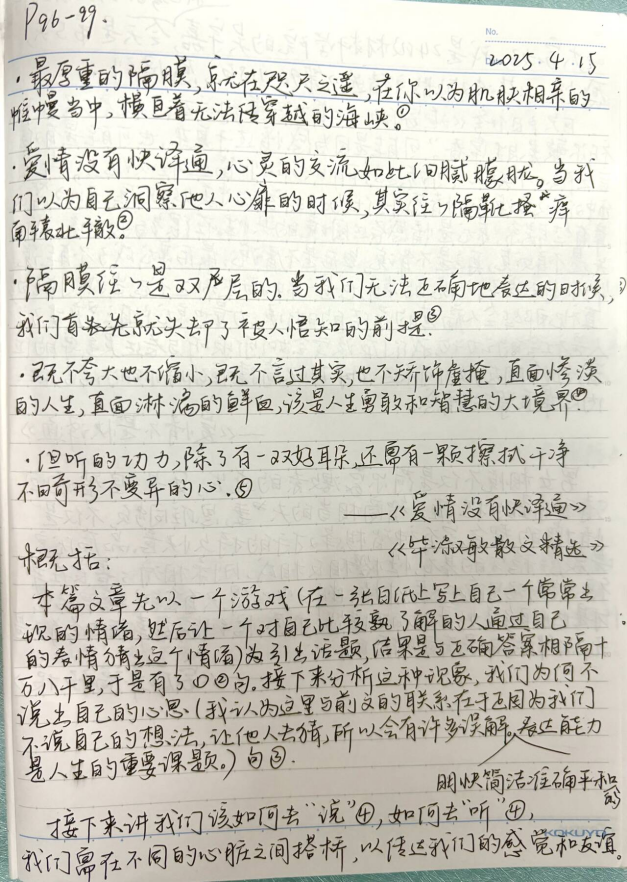 P96-99.
No.
2025.4.15
·最厚重的隔膜,就在咫尺之遥,在你以为肌肤相亲的
帷幔当中,横亘着无法穿越的海峡。①
·爱情没有快译通,心灵的交流如此细腻朦胧。当我
们以为自己洞察他人心扉的时候,其实往往隔靴搔痒
南辕北辙。②
·隔膜往往是双层的.当我们无法正确地表达的时候,
我们首先就失却了被人悟知的前提。③
·既不夸大也不缩小,既不言过其实,也不矫饰虚掩,直面惨淡
的人生,直面淋漓的鲜血,该是人生勇敢和智慧的大境界④
·但听的功力,除了有一双好耳朵,还需有一颗擦拭干净
不畸形不变异的心.⑤
——《爱情没有快译通》
《毕淑敏散文精选》
概括:
本篇文章先以一个游戏(在一张白纸上写上自己一个常常出
现的情绪,然后让一个对自己比较熟了解的人通过自己
的表情猜出这个情绪)为引出话题,结果是与正确答案相隔十
万八千里,于是有了①②句.接下来分析这种现象,我们为何不
说出自己的心思.(我认为这里与前文的联系在于正因为我们
不说自己的想法,让他人去猜,所以会有许多误解,表达能力
是人生的重要课题。)句③.
明快简洁准确平和的
接下来讲我们该如何去“说”④,如何去“听”④,
KOKUYO
我们需在不同的心脏之间搭桥,以传达我们的感觉和友谊。